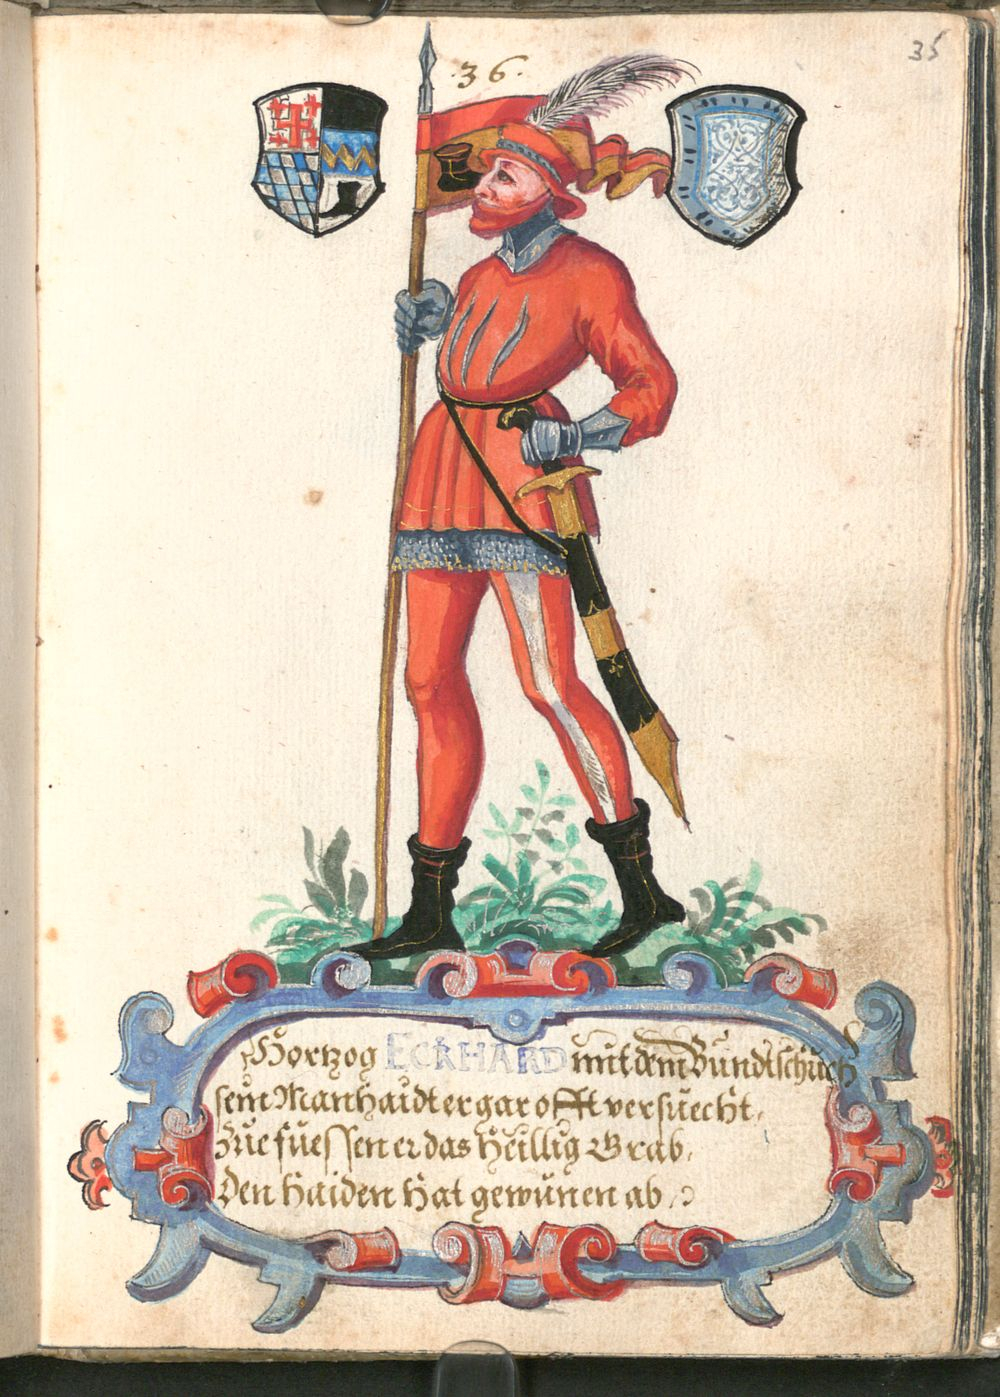 35
.36.
Hortzog ECKHARD mit dem Bundtschuech
sein Manhaidt er gar offt versuecht,
Zue fuessen er das Heillig Grab,
Den Haiden hat gewunen ab.